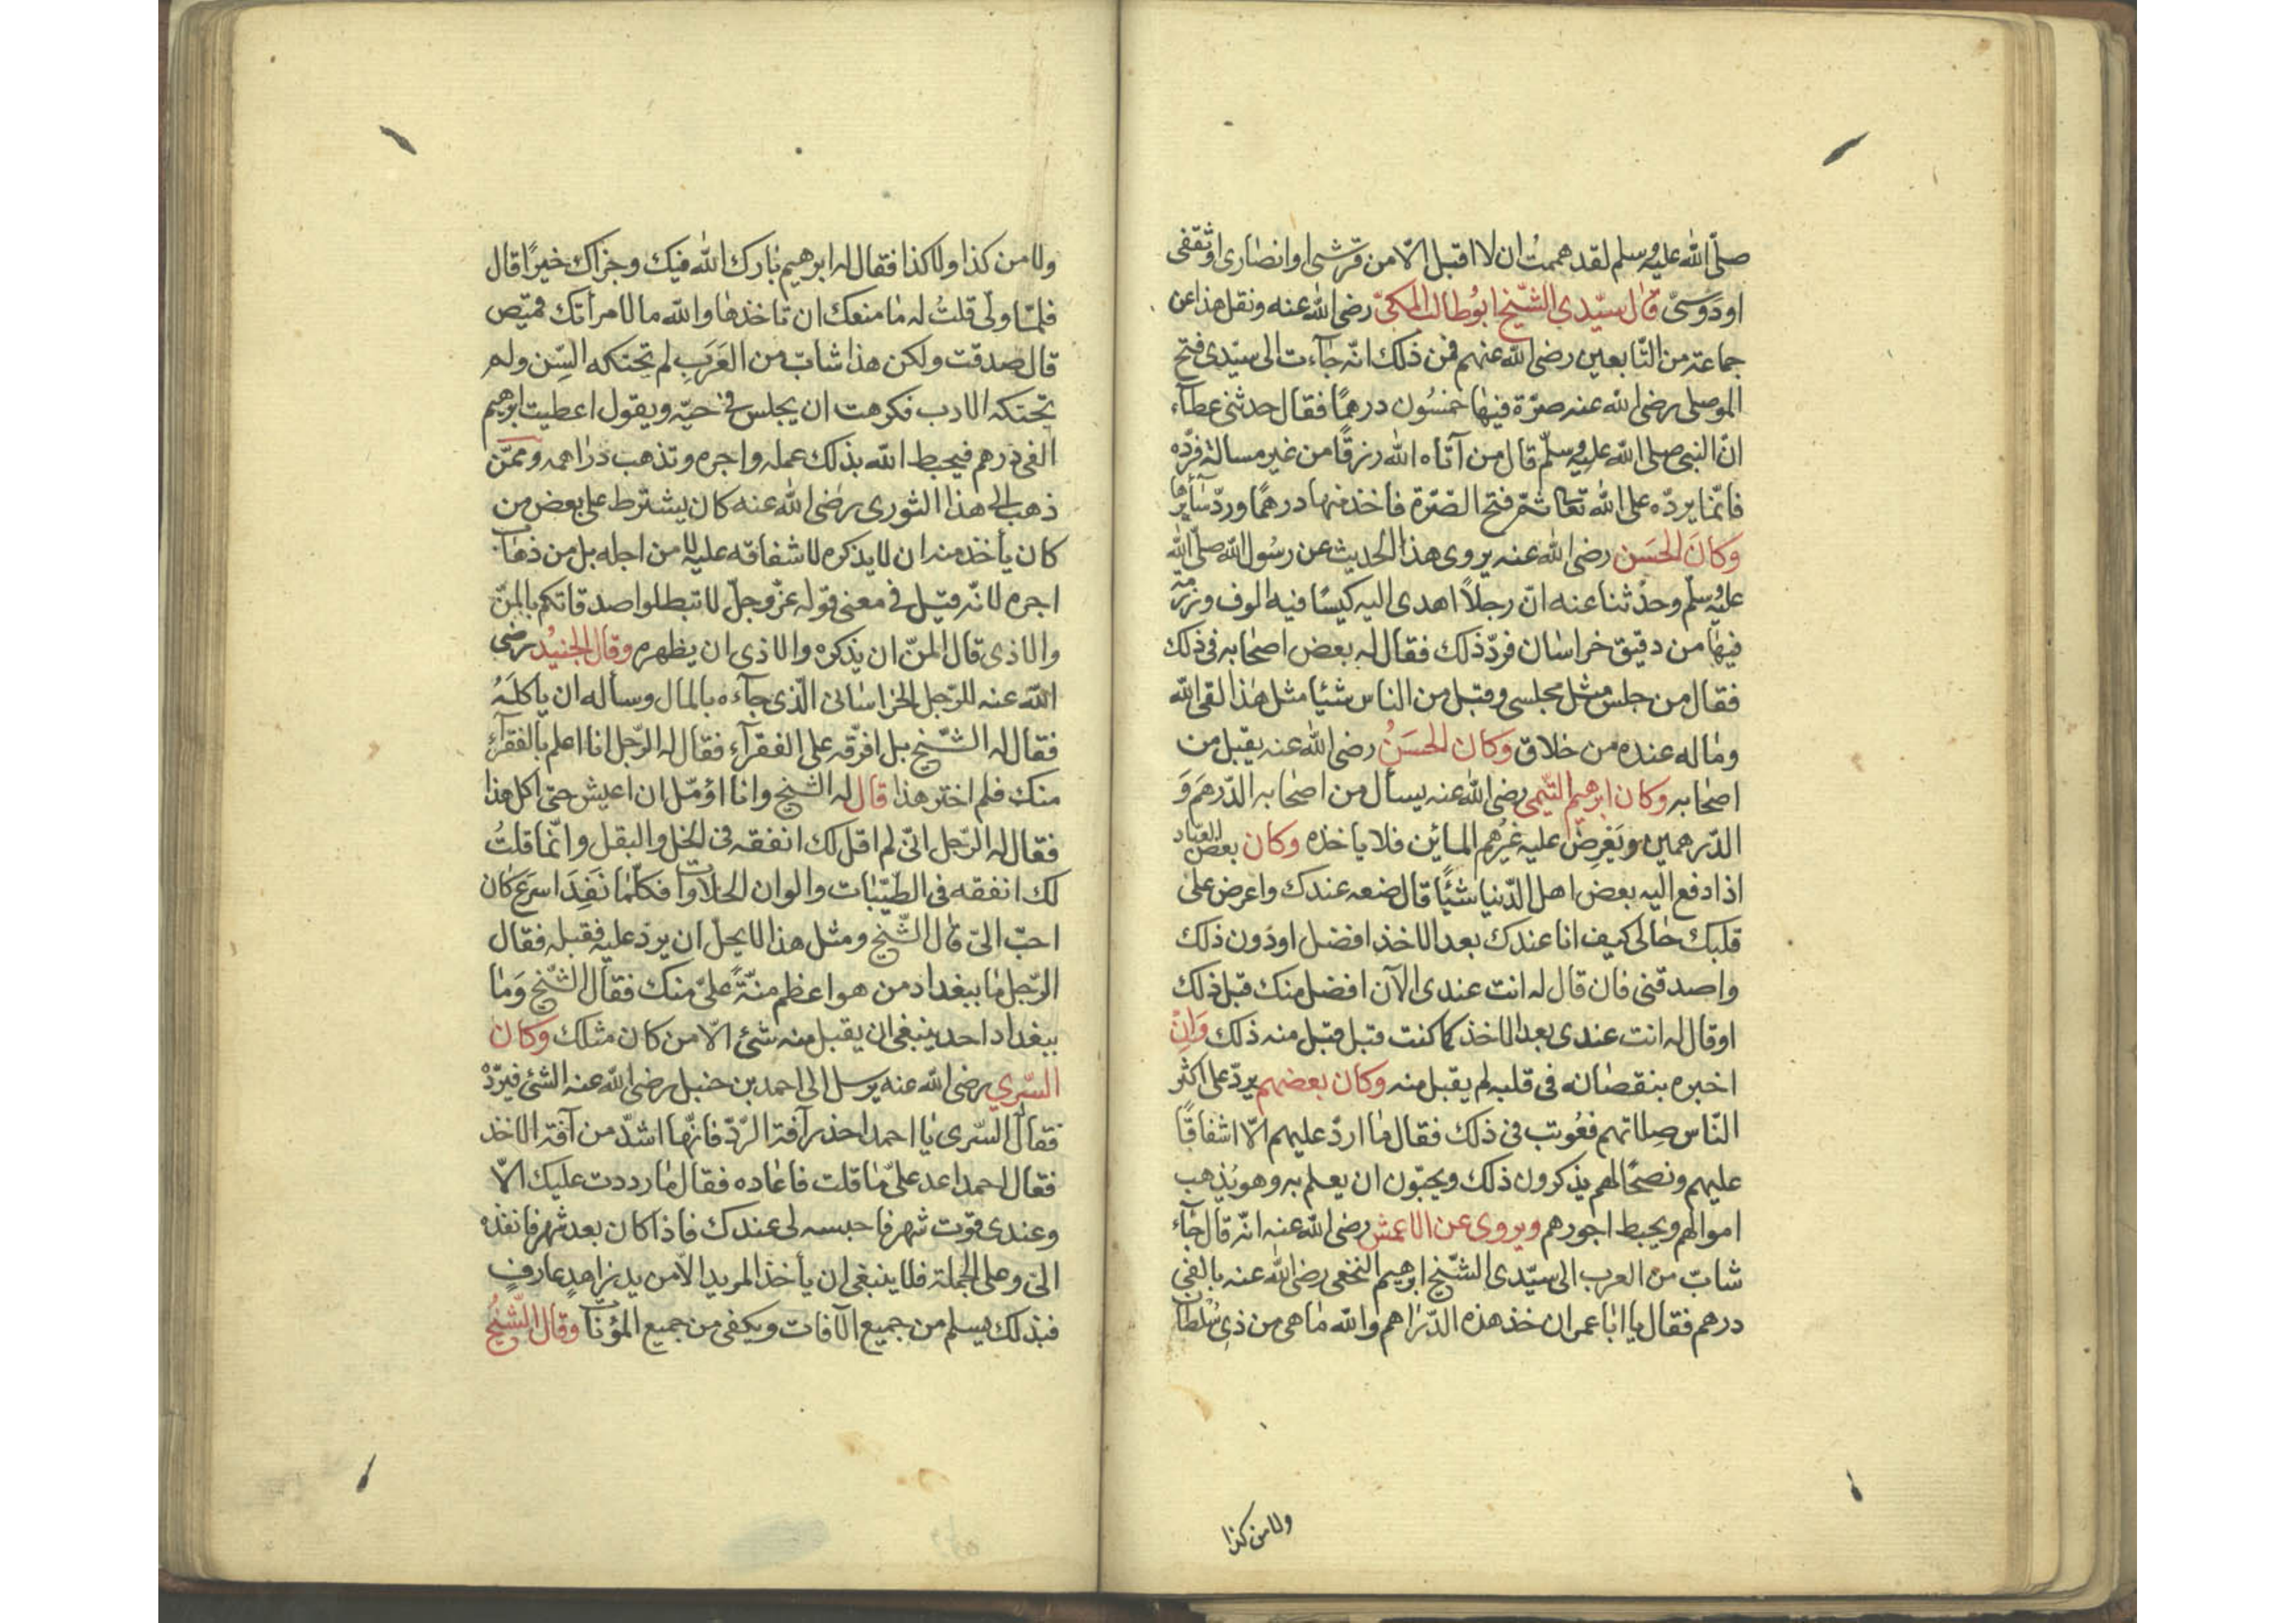 صلّى الله عليه وسلم لقد هممت ان لا اقبل الّا من قرشى او انصارى او ثقفى
او دوسىّ قال سيّدي الشّيخ ابوُ طالب المكىّ رضى الله عنه ونقل هذا عن
جماعة من التّابعين رضى الله عنهم فمن ذلك انّه جآءت الى سيّدى فتح
الموصلى رضى الله عنه صرّة فيها خمسُون درهمًا فقال حدثنى عطآء
انّ النبى صلى الله عليه وسلّم قال من آتاه الله رزقًا من غير مسالة فردّه
فانّما يردّه على الله تعالى ثمّ فتح الصّرة فاخذ منها درهمًا وردّ سآئرها
وَكانَ الحَسَن رضى الله عنه يروى هذا الحديث عن رسُول الله صلّى الله
عليه وسلّم وحدّثنا عنه انّ رجلاً اهدى اليه كيسًا فيه الوف ورزمة
فيها من دقيق خراسان فردّ ذلك فقال له بعض اصحابه فى ذلك
فقال من جلس مثل مجلسى وقبل من الناس شيئا مثل هذا لقى الله
وما له عنده من خلاق وكان الحسَنُ رضى الله عنه يقبل من
اصحابه وكان ابرهيم التّيمى رضى الله عنه يسأل من اصحابه الدّرهَم وَ
الدّرهمين ويَعْرِضُ عليه غيرُهم المائين فلا ياخذه وكان بعض العبّاد
اذا دفع اليه بعض اهل الدّنيا شيئًا قال ضعه عندك واعرض على
قلبك حالى كيف انا عندك بعد الاخذ افضل او دُون ذلك
واصدقنى فان قال له انت عندى الآن افضل منك قبل ذلك
او قال له انت عندى بعد الاخذ كما كنت قبل قبل منه ذلك وَانْ
اخبره بنقصانه فى قلبه لم يقبل منه وكان بعضهم يردّ على اكثر
النّاس صِلاتهم فعُوتب فى ذلك فقال ما اردّ عليهم الّا اشفاقًا
عليهم ونصحًا لهم يذكرون ذلك ويحبّون ان يعلم به وهو يُذهب
اموالهم ويحبط اجورهم ويروى عن الاعمش رضى الله عنه انّه قال جآء
شابّ من العرب الى سيّدى الشّيخ ابرهيم النخعى رضى الله عنه بالفى
درهم فقال يا ابا عمران خذ هذه الدّراهم والله ما هى من ذى سُلطان
ولا من كذا
ولا من كذا ولا كذا فقال له ابرهيم بارك الله فيك وجزاك خيرًا قال
فلمّا ولّى قلتُ له ما منعك ان تاخذها والله ما لامرأتك قميص
قال صدقت ولكن هذا شابّ من العَرَبِ لم تحتكه السِّن ولم
تحتكه الادب فكرهت ان يجلس فى حيّه ويقول اعطيت ابرهيم
الفى درهم فيحبط الله بذلك عمله واجره وتذهب دراهمه وممّن
ذهب الى هذا الثورى رضى الله عنه كان يشترط على بعض من
كان يأخذ منه ان لا يذكره لاشفاقه عليه لا من اجله بل من ذهاب
اجره لانّه قيل فى معنى قوله عزّ وجلّ لا تبطلوا صدقاتكم بالمنّ
والاذى قال المنّ ان يذكره والاذى ان يظهره وقال الجنيُد رضى
الله عنه للرّجل الخراسانى الّذى جآءه بالمال وسأله ان يأكلَهُ
فقال له الشّيخ بل افرّقه على الفقرآء فقال له الرّجل انا اعلم بالفقرآء
منك فلم اختر هذا قال له الشيخ وانا اؤمّل ان اعيش حتى اكل هذا
فقال له الرّجل انّى لم اقل لك انفقه فى الخل والبقل وانّما قلتُ
لك انفقه فى الطيّبات والوان الحلاوات فكلّما نَفِدَ اسرَع كان
احبّ الىّ قال الشّيخ ومثل هذا لا يحلّ ان يردّ عليه فقبله فقال
الرّجل ما ببغداد من هو اعظم منّةً علىّ منك فقال الشّيخ وَما
ببغداد احد ينبغى ان يقبل منه شئ الّا من كان مثلك وكان
السّري رضى الله عنه يرسل الى احمد بن حنبل رضى الله عنه الشئ فيردّه
فقال السّرى يا احمد احذر آفة الرّدّ فانّها اشدّ من آفة الاخذ
فقال احمد اعد علىّ ما قلت فاعاده فقال ما رددت عليك الّا
وعندى قوت شهر فاحبسه لى عندك فاذا كان بعد شهر فانفذه
الىّ وعلى الجملة فلا ينبغى ان يأخذ المريد الّا من يد زاهدٍ عارفٍ
فبذلك يسلم من جميع الآفات ويكفى من جميع المؤنات وقال الشّيخُ